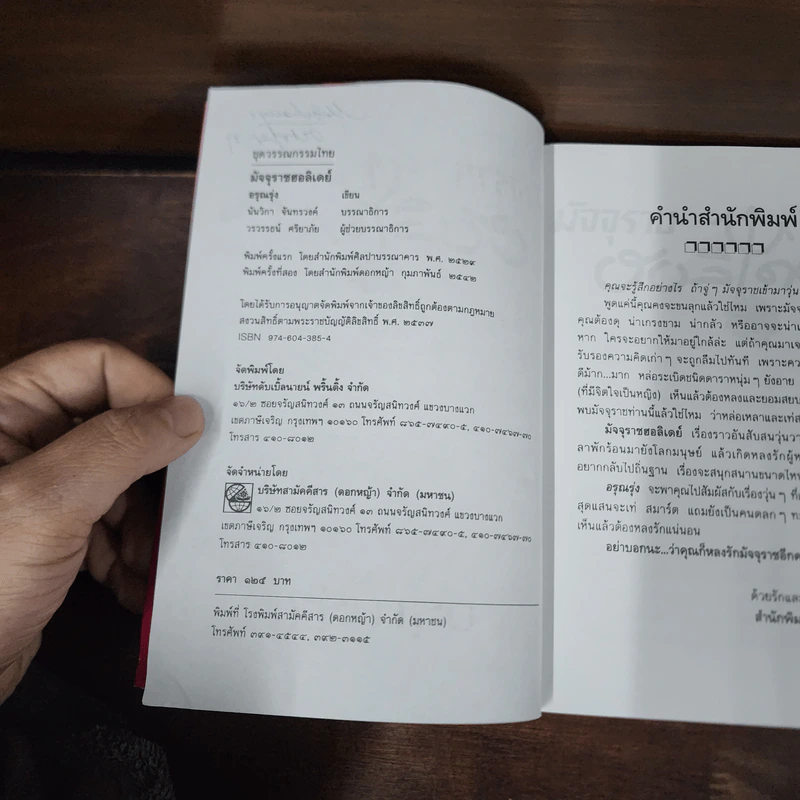 ชุดวรรณกรรมไทย
มัจจุราชฮอลิเดย์
อรุณรุ่ง เขียน
นันวิภา จันทรวงค์ บรรณาธิการ
วรวรรธน์ ศรียาภัย ผู้ช่วยบรรณาธิการ
พิมพ์ครั้งแรก โดยสำนักพิมพ์ศิลปาบรรณาคาร พ.ศ. ๒๕๒๙
พิมพ์ครั้งที่สอง โดยสำนักพิมพ์ดอกหญ้า กุมภาพันธ์ ๒๕๔๒
โดยได้รับการอนุญาตจัดพิมพ์จากเจ้าของลิขสิทธิ์ถูกต้องตามกฎหมาย
สงวนสิทธิ์ตามพระราชบัญญัติลิขสิทธิ์ พ.ศ. ๒๕๓๗
ISBN 974-604-385-4
จัดพิมพ์โดย
บริษัทดับเบิ้ลนายน์ พริ้นติ้ง จำกัด
๑๖/๒ ซอยจรัญสนิทวงศ์ ๑๓ ถนนจรัญสนิทวงศ์ แขวงบางแวก
เขตภาษีเจริญ กรุงเทพฯ ๑๐๑๖๐ โทรศัพท์ ๘๖๕-๗๔๙๐-๕, ๔๑๐-๗๔๖๗-๗๐
โทรสาร ๔๑๐-๘๐๑๒
จัดจำหน่ายโดย
บริษัทสามัคคีสาร (ดอกหญ้า) จำกัด (มหาชน)
๑๖/๒ ซอยจรัญสนิทวงศ์ ๑๓ ถนนจรัญสนิทวงศ์ แขวงบางแวก
เขตภาษีเจริญ กรุงเทพฯ ๑๐๑๖๐ โทรศัพท์ ๘๖๕-๗๔๙๐-๕, ๔๑๐-๗๔๖๗-๗๐
โทรสาร ๔๑๐-๘๐๑๒
ราคา ๑๒๕ บาท
พิมพ์ที่ โรงพิมพ์สามัคคีสาร (ดอกหญ้า) จำกัด (มหาชน)
โทรศัพท์ ๓๙๑-๔๕๔๔, ๓๙๒-๓๑๑๕
คำนำสำนักพิมพ์
คุณจะรู้สึกอย่างไร ถ้าจู่ๆ มัจจุราชเข้ามาวุ่น
พูดแค่นี้คุณคงจะขนลุกแล้วใช่ไหม เพราะมัจจุ
คุณต้องดุ น่าเกรงขาม น่ากลัว หรืออาจจะน่าเ
หาก ใครจะอยากให้มาอยู่ใกล้ล่ะ แต่ถ้าคุณมาเจ
รับรองความคิดเก่าๆ จะถูกลืมไปทันที เพราะคว
ดีม้าก...มาก หล่อระเบิดชนิดดาราหนุ่มๆ ยังอาย
(ที่มีจิตใจเป็นหญิง) เห็นแล้วต้องหลงและยอมสยบ
พบมัจจุราชท่านนี้แล้วใช่ไหม ว่าหล่อเหลาและเท่ส
มัจจุราชฮอลิเดย์ เรื่องราวอันสับสนวุ่นวา
ลาพักร้อนมายังโลกมนุษย์ แล้วเกิดหลงรักผู้ห
อยากกลับไปถิ่นฐาน เรื่องจะสนุกสนานขนาดไห
อรุณรุ่ง จะพาคุณไปสัมผัสกับเรื่องวุ่นๆ ที่
สุดแสนจะเท่ สมาร์ต แถมยังเป็นคนตลกๆ
เห็นแล้วต้องหลงรักแน่นอน
อย่าบอกนะ...ว่าคุณก็หลงรักมัจจุราชอีกค
ด้วยรักและ
สำนักพิม